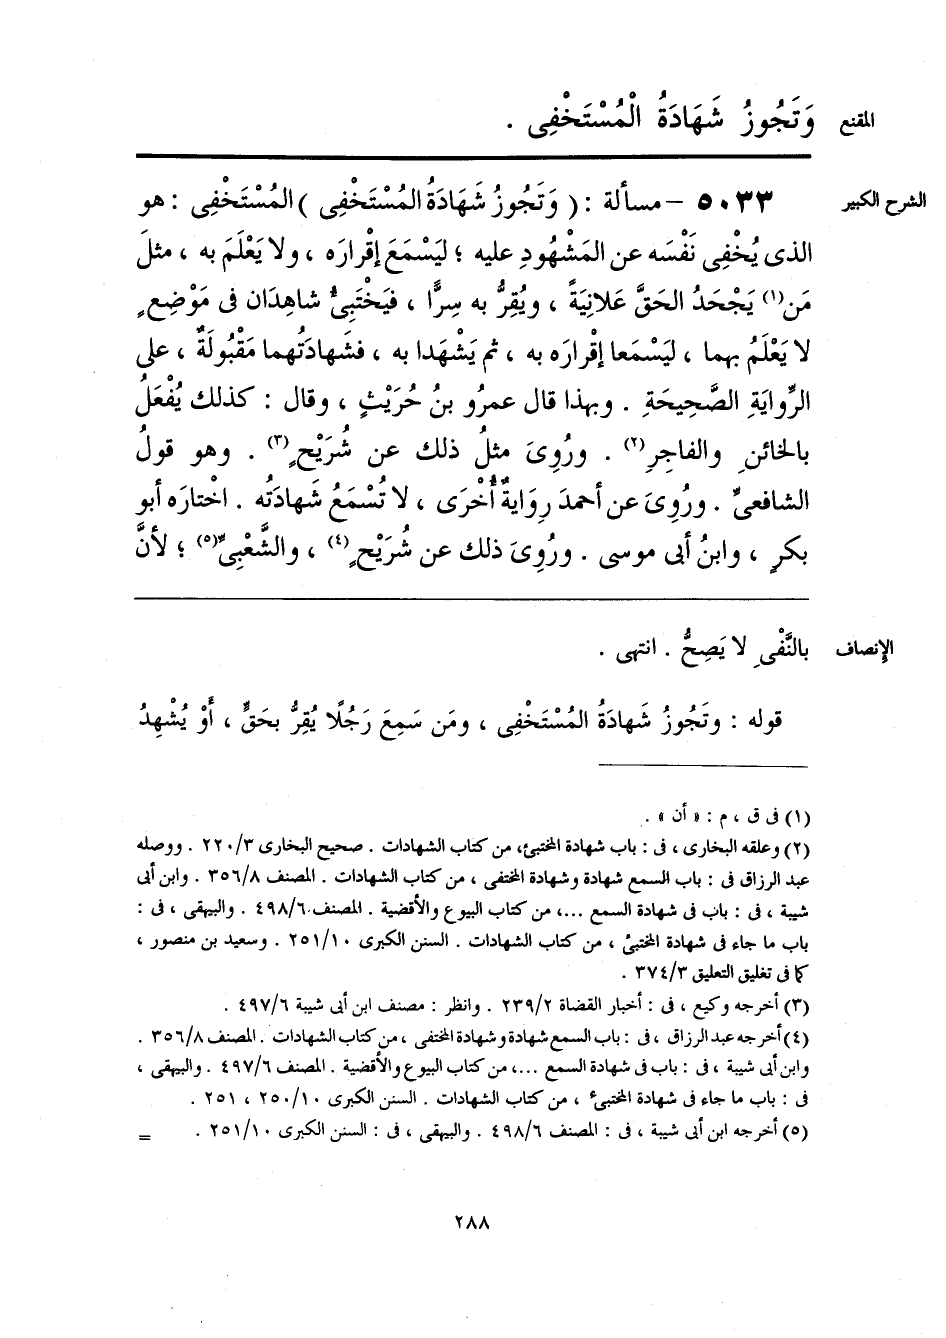 المقنع وَتَجُوزُ شَهَادَةُ الْمُسْتَخْفِى .
الشرح الكبير ٥٠٣٣ – مسألة : ( وَتَجُوزُ شَهَادَةُ المُسْتَخْفِى ) المُسْتَخْفِى : هو
الذى يُخْفِى نَفْسَه عن المَشْهُودِ عليه ؛ ليَسْمَعَ إقْرارَه ، ولا يَعْلَمَ به ، مثلَ
مَن(١) يَجْحَدُ الحَقَّ عَلانِيَةً ، ويُقِرُّ به سِرًّا ، فيَخْتَبِئُ شاهِدَان فى مَوْضِعٍ
لا يَعْلَمُ بهما ، ليَسْمَعا إقْرارَه به ، ثم يَشْهَدا به ، فشَهادَتُهما مَقْبُولَةٌ ، على
الرِّوايَةِ الصَّحِيحَةِ . وبهذا قال عمرُو بنُ حُرَيْثٍ ، وقال : كذلك يُفْعَلُ
بالخائنِ والفاجِرِ(٢) . ورُوِىَ مثلُ ذلك عن شُرَيْحٍ(٣) . وهو قولُ
الشافعىِّ . ورُوِىَ عن أحمدَ رِوايَةٌ أُخْرَى ، لا تُسْمَعُ شَهادَتُه . اخْتارَه أبو
بكرٍ ، وابنُ أبى موسى . ورُوِىَ ذلك عن شُرَيْحٍ(٤) ، والشَّعْبِىِّ(٥) ؛ لأنَّ
الإنصاف بالنَّفْىِ لا يَصِحُّ . انتهى .
قوله : وتَجُوزُ شَهادَةُ المُسْتَخْفِى ، ومَن سَمِعَ رَجُلًا يُقِرُّ بحَقٍّ ، أَوْ يُشْهِدُ
(١) فى ق ، م : « أن » .
(٢) وعلقه البخارى ، فى : باب شهادة المختبئ، من كتاب الشهادات . صحيح البخارى ٢٢٠/٣ . ووصله
عبد الرزاق فى : باب السمع شهادة وشهادة المختفى ، من كتاب الشهادات . المصنف ٣٥٦/٨ . وابن أبى
شيبة ، فى : باب فى شهادة السمع ...، من كتاب البيوع والأقضية . المصنف ٤٩٨/٦ . والبيهقى ، فى :
باب ما جاء فى شهادة المختبئ ، من كتاب الشهادات . السنن الكبرى ٢٥١/١٠ . وسعيد بن منصور ،
كما فى تغليق التعليق ٣٧٤/٣ .
(٣) أخرجه وكيع ، فى : أخبار القضاة ٢٣٩/٢ . وانظر : مصنف ابن أبى شيبة ٤٩٧/٦ .
(٤) أخرجه عبد الرزاق ، فى : باب السمع شهادة وشهادة المختفى ، من كتاب الشهادات . المصنف ٣٥٦/٨ .
وابن أبى شيبة ، فى : باب فى شهادة السمع ...، من كتاب البيوع والأقضية . المصنف ٤٩٧/٦ . والبيهقى ،
فى : باب ما جاء فى شهادة المختبئ ، من كتاب الشهادات . السنن الكبرى ٢٥٠/١٠ ، ٢٥١ .
(٥) أخرجه ابن أبى شيبة ، فى : المصنف ٤٩٨/٦ . والبيهقى ، فى : السنن الكبرى ٢٥١/١٠ . =
٢٨٨